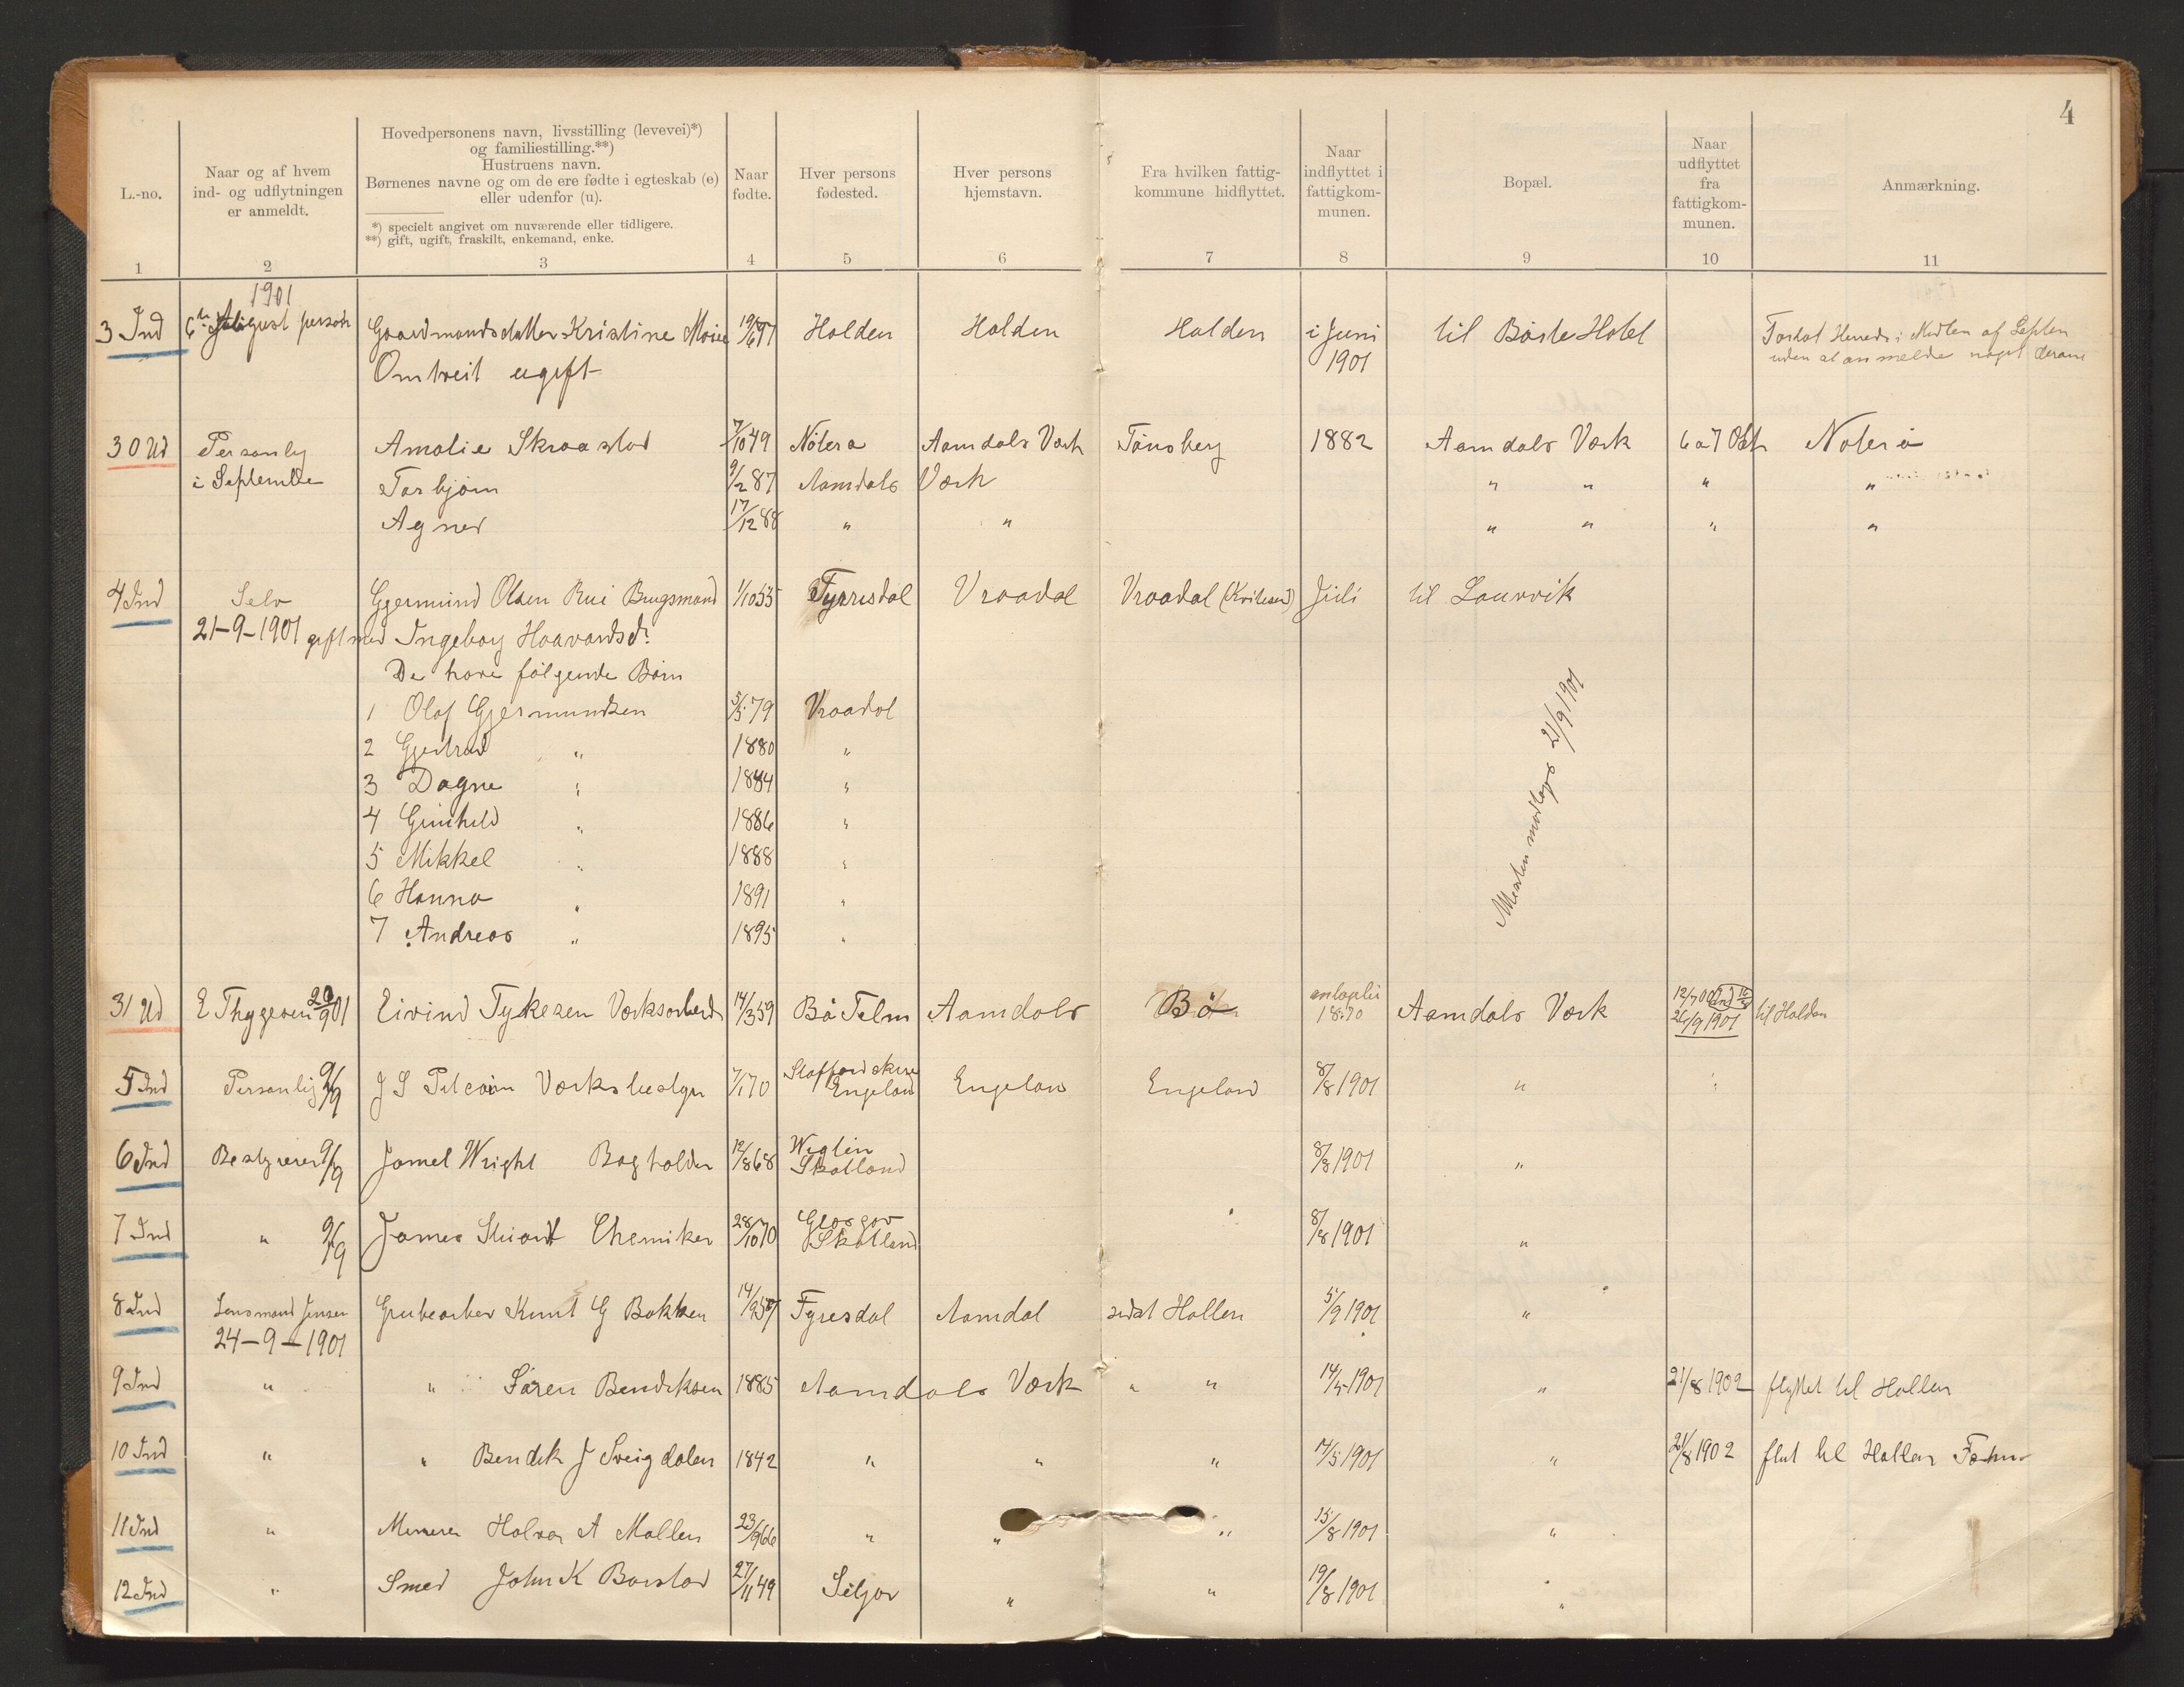 4
L.-no.
Naar og af hvem
ind- og udflytningen
er anmeldt.
Hovedpersonens navn, livsstilling (levevei)*)
og familiestilling.**)
Hustruens navn.
Børnenes navne og om de ere fødte i egteskab (e)
eller udenfor (u).
*) specielt angivet om nuværende eller tidligere.
**) gift, ugift, fraskilt, enkemand, enke.
Naar
fødte.
Hver persons
fødested.
Hver persons
hjemstavn.
Fra hvilken fattig-
kommune hidflyttet.
Naar
indflyttet i
fattigkom-
munen.
Bopæl.
Naar
udflyttet
fra
fattigkom-
munen.
Anmærkning.
1 2 3 4 5 6 7 8 9 10 11
1901
3 Ind 6te August person Gaardmandsdatter Kristine Marie 19/6 77 Holden Holden Holden i Juni til Børte Hotel Forlot Herred i Midten af Septen
Omtveit ugift 1901 uden at anmelde noget derom
30 Ud Personlig Amalie Skraastad 7/10 49 Nøterø Aamdals Værk Tønsberg 1882 Aamdals Værk 6 a 7 Okt Noterø
i September Torbjørn 9/2 87 Aamdals Værk " " " "
Agnes 17/12 88 " " " " " "
4 Ind Selv Gjermund Olsen Rui Brugsmand 1/10 55 Fyrresdal Vraadal Vraadal (Kviteseid) Juli til Laurvik
21-9-1901 gift med Ingeborg Haavardsd.
De have følgende Børn
1 Olaf Gjermundsen 5/5 79 Vraadal
2 Gjertrud " 1880 "
3 Dagne " 1884 "
4 Gunhild " 1886 "
5 Mikkel " 1888 "
6 Hanna " 1891 "
7 Andreas " 1895 "
21/9 1901
31 Ud E Thygesen 20/9 01 Eivind Tykesen Værksarbeid 14/3 59 Bø Telm Aamdals Bø 1870 Aamdals Værk 26/9 1901 til Holden
5 Ind Personlig 9/9 J S Pitcairn Værksbestyr 7/1 70 Staffordskire Engeland Engeland Engeland 8/8 1901 " "
6 Ind Bestyreren 9/9 Jamel Wright Bogholder 12/8 68 Wigtin Skotland 8/8 1901 "
7 Ind " 9/9 James Stuart Chemiker 28/10 70 Glasgov Skotland 8/8 1901 "
8 Ind Lensmand Jensen Grubearbei Knut G Bakken 14/9 59 Fyresdal Aamdal sidst Hollen 5/9 1901 "
24-9-1901
9 Ind " " Søren Bendiksen 1885 Aamdals Værk " " 14/5 1901 " 21/8 1902 flyttet til Hollen
10 Ind " " Bendik J Sveigdalen 1842 " " " 14/5 1901 " 21/8 1902 flut til Hollen
11 Ind " Minerer Halvor A Mollen 23/9 66 " " " 15/8 1901 "
12 Ind " Smed John K Borstad 27/11 49 Seljor " " 19/8 1901 "